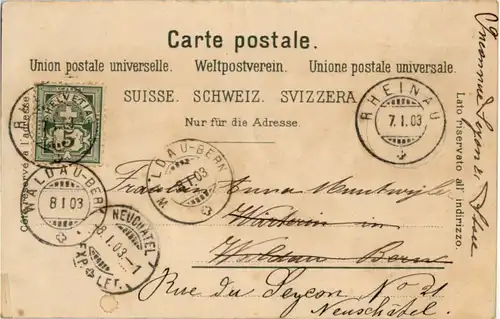 Carte postale.
Union postale universelle. Weltpostverein. Unione postale universale.
SUISSE. SCHWEIZ. SVIZZERA
Nur für die Adresse.
Côté réservé à l'adresse.
Lato riservato all' indirizzo.
HELVETIA
5
RHEINAU
7.1.03
WALDAU-BERN
8 I 03
WALDAU-BERN
I 03
NEUCHATEL
8.I.03.–1
EXP. LET.
Fräulein Anna Muntwyler
Wärterin in
Waldau Bern
Rue du Seyon No 21
Neuschatel